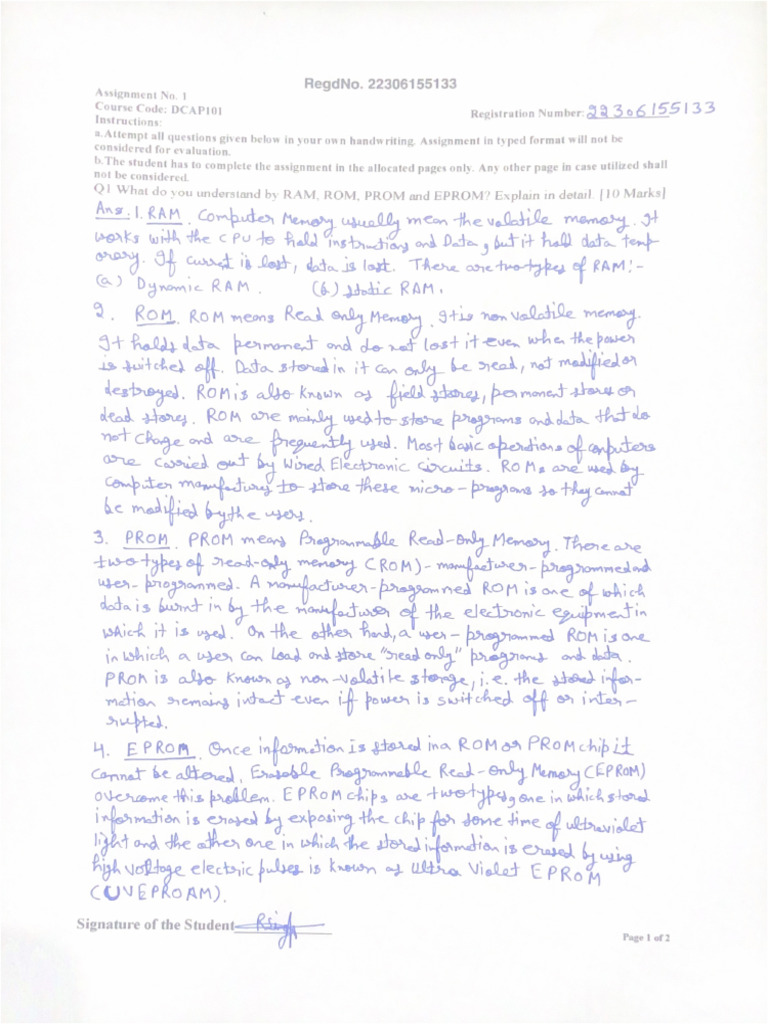 RegdNo. 22306155133
Assignment No. 1
Course Code: DCAP101
Registration Number: 22306155133
Instructions:
a.Attempt all questions given below in your own handwriting. Assignment in typed format will not be
considered for evaluation.
b.The student has to complete the assignment in the allocated pages only. Any other page in case utilized shall
not be considered.
Q1 What do you understand by RAM, ROM, PROM and EPROM? Explain in detail. [10 Marks]
Ans:1. RAM. Computer Memory usually mean the volatile memory. It
works with the CPU to hold instructions and Data, but it hold data temp
orary. If current is lost, data is lost. There are two types of RAM:-
(a) Dynamic RAM. (b) Static RAM.
2. ROM. ROM means Read only Memory. It is non volatile memory.
It holds data permanent and do not lost it even when the power
is switched off. Data stored in it can only be read, not modified or
destroyed. ROM is also known as field stores, permanent stores or
dead stores. ROM are mainly used to store programs and data that do
not change and are frequently used. Most basic operations of computers
are carried out by Wired Electronic circuits. ROMs are used by
computer manufactures to store these micro-programs so they cannot
be modified by the users.
3. PROM. PROM means Programmable Read-Only Memory. There are
two types of read-only memory (ROM)- manufacturer-programmed and
user-programmed. A manufacturer-programmed ROM is one of which
data is burnt in by the manufacturer of the electronic equipment in
which it is used. On the other hand, a user-programmed ROM is one
in which a user can Load and store "read only" programs and data.
PROM is also known as non-volatile storage, i.e. the stored infor-
mation remains intact even if power is switched off or inter-
rrupted.
4. EPROM. Once information is stored in a ROM or PROM chip it
cannot be altered. Erasable Programmable Read-Only Memory (EPROM)
overcome this problem. EPROM chips are two types, one in which stored
information is erased by exposing the chip for some time of ultraviolet
light and the other one in which the stored information is erased by using
high voltage electric pulses is known as Ultra Violet EPROM
(UVEPROAM).
Signature of the Student RSingh
Page 1 of 2